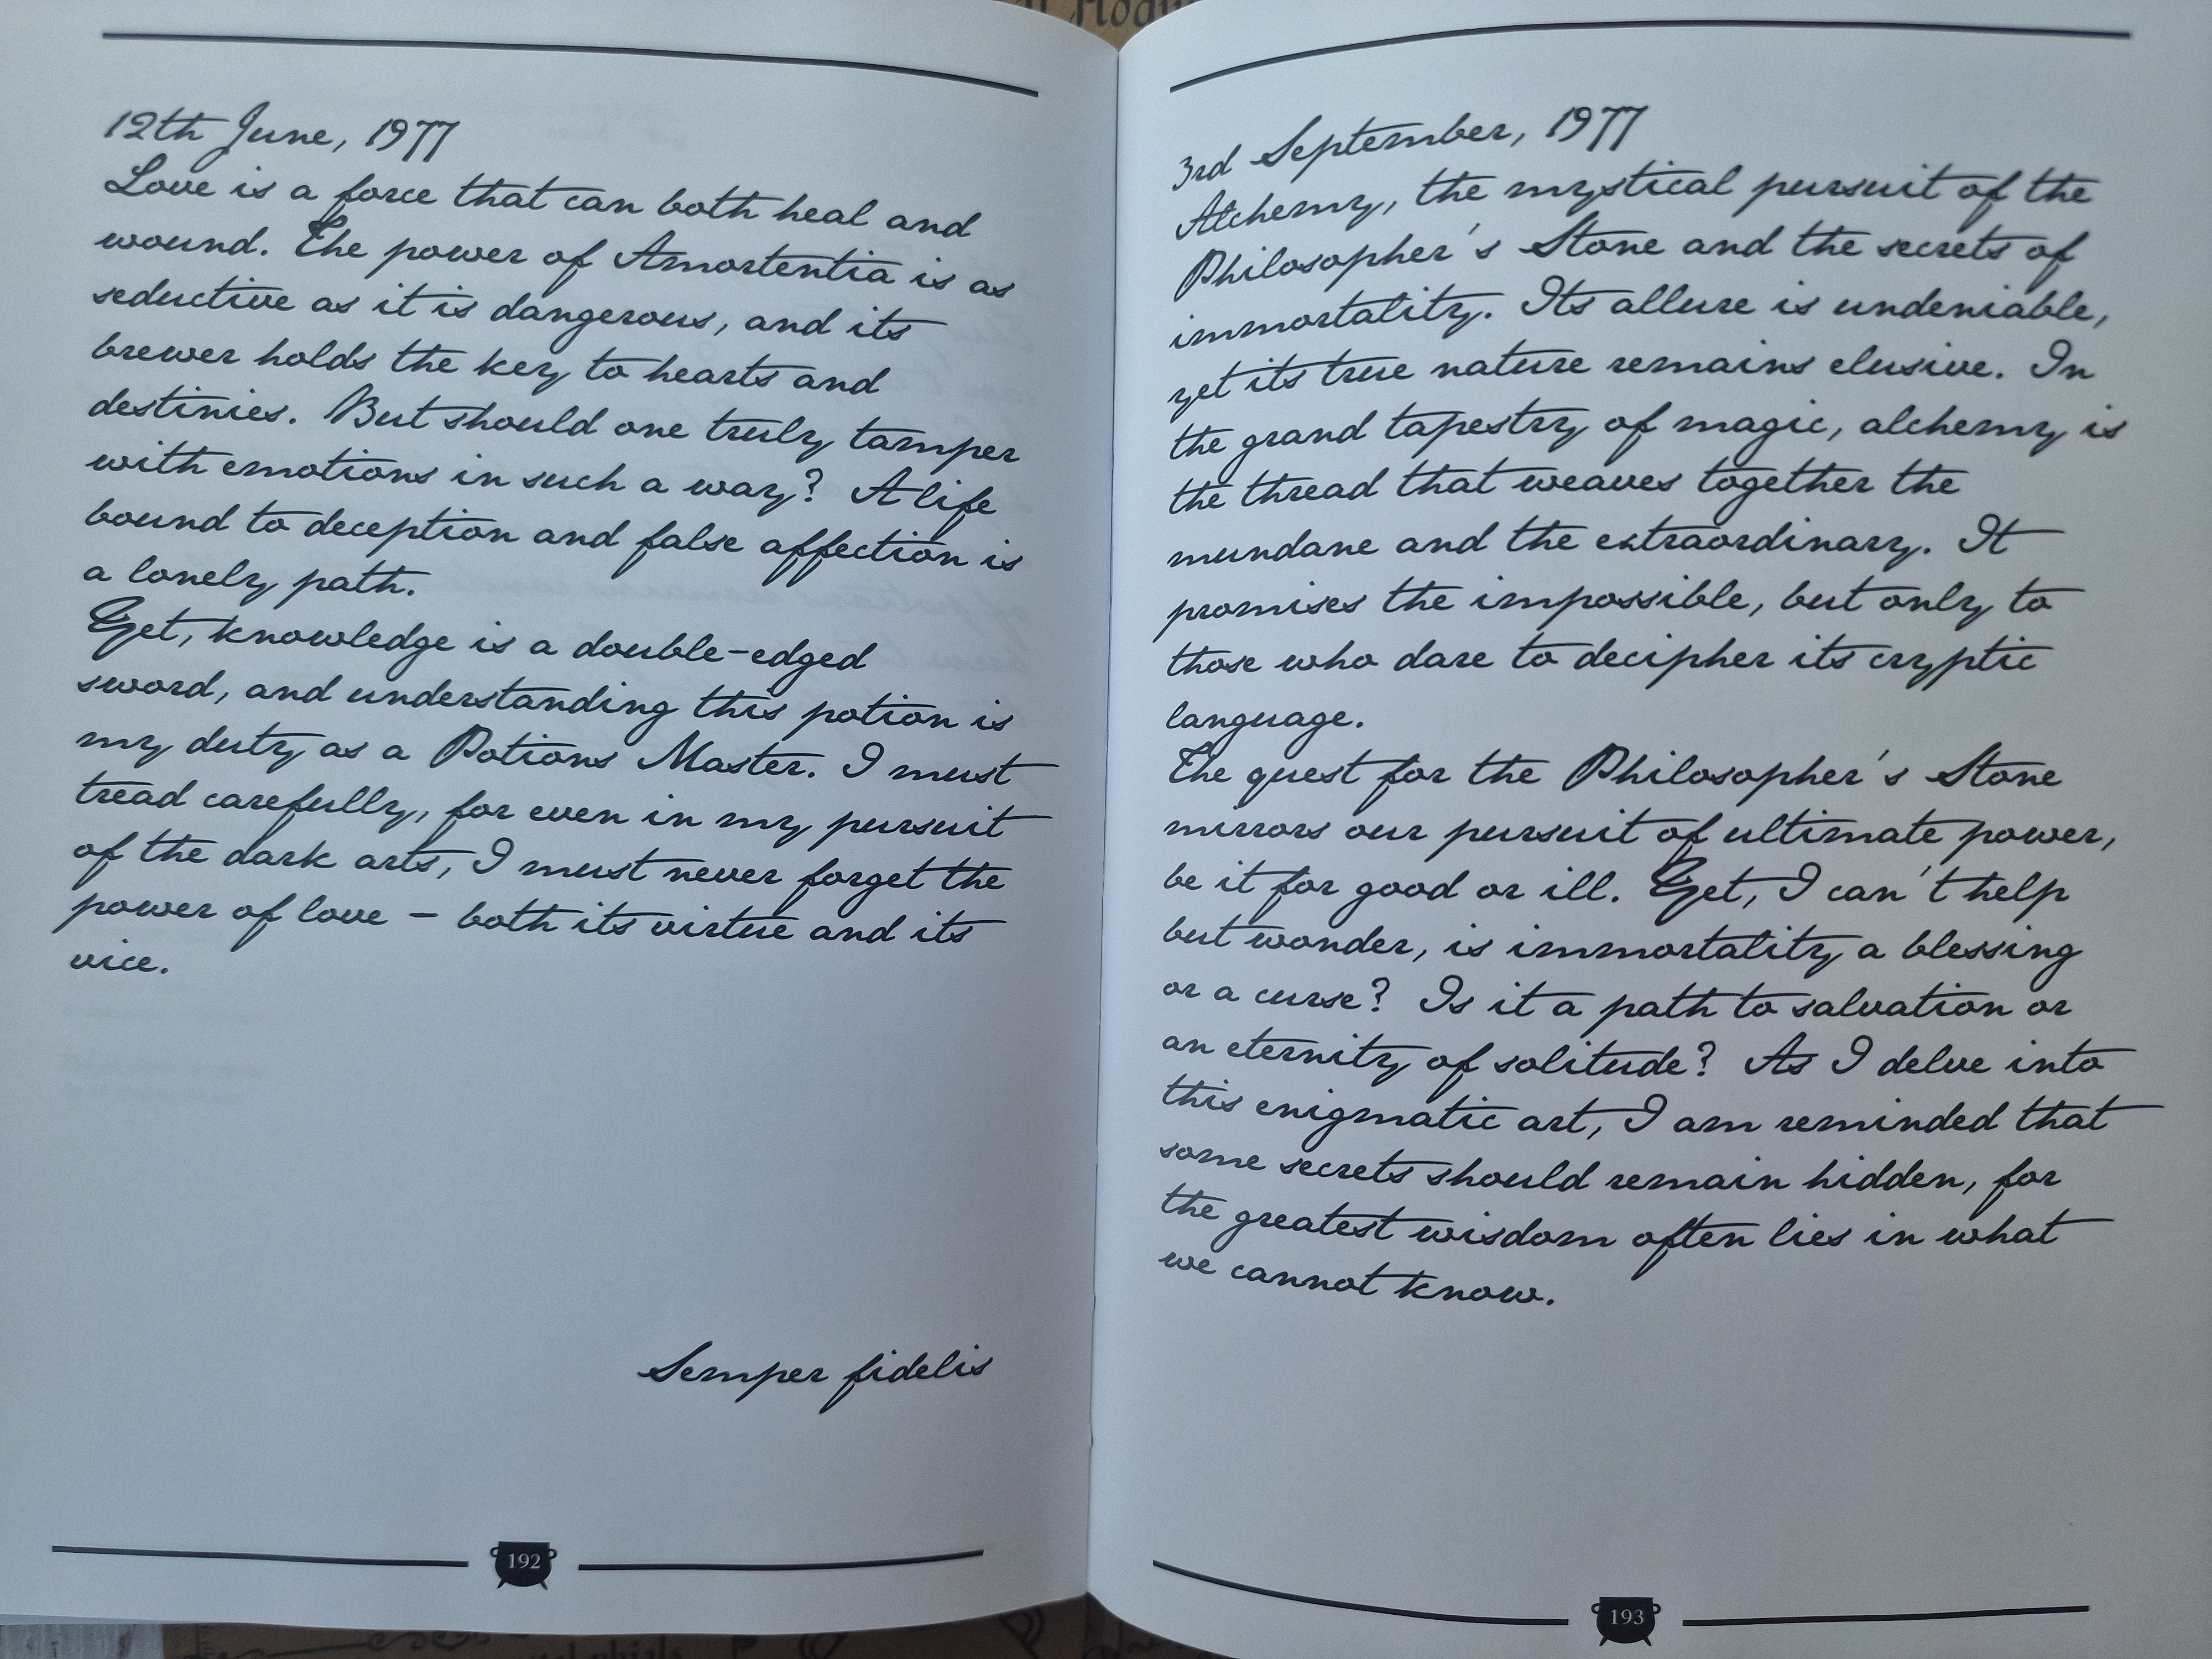 12th June, 1977
Love is a force that can both heal and
wound. The power of Amortentia is as
seductive as it is dangerous, and its
brewer holds the key to hearts and
destinies. But should one truly tamper
with emotions in such a way? A life
bound to deception and false affection is
a lonely path.
Yet, knowledge is a double-edged
sword, and understanding this potion is
my duty as a Potions Master. I must
tread carefully, for even in my pursuit
of the dark arts, I must never forget the
power of love – both its virtue and its
vice.
Semper fidelis
192
3rd September, 1977
Alchemy, the mystical pursuit of the
Philosopher's Stone and the secrets of
immortality. Its allure is undeniable,
yet its true nature remains elusive. In
the grand tapestry of magic, alchemy is
the thread that weaves together the
mundane and the extraordinary. It
promises the impossible, but only to
those who dare to decipher its cryptic
language.
The quest for the Philosopher's Stone
mirrors our pursuit of ultimate power,
be it for good or ill. Yet, I can't help
but wonder, is immortality a blessing
or a curse? Is it a path to salvation or
an eternity of solitude? As I delve into
this enigmatic art, I am reminded that
some secrets should remain hidden, for
the greatest wisdom often lies in what
we cannot know.
193